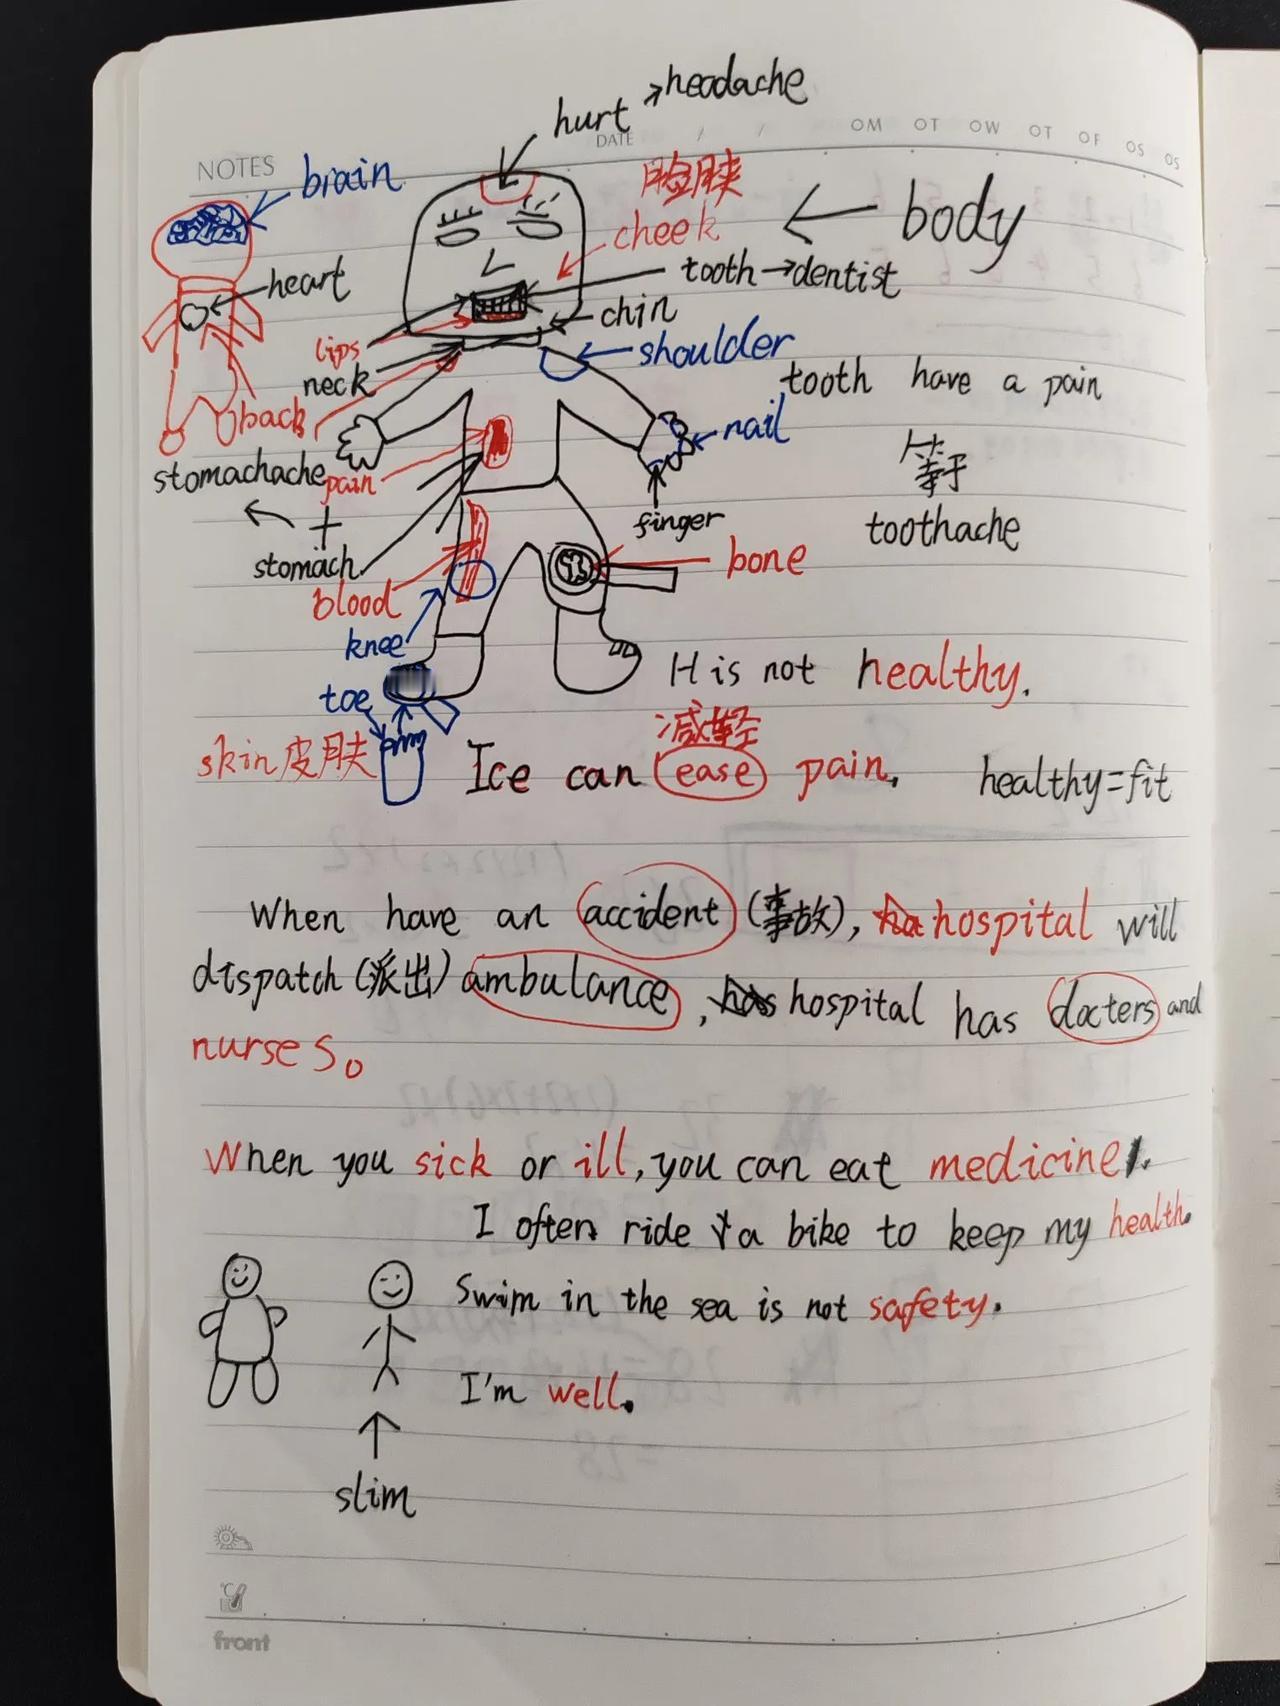 hurt →headache
DATE / /
OM OT OW OT OF OS OS
NOTES
brain
脸腴
cheek
← body
heart
tooth→dentist
chin
lips
neck
shoulder
tooth have a pain
back
nail
stomachache
pain
等于
finger
toothache
+
stomach
bone
blood
knee
H is not healthy.
toe
减轻
skin 皮肤
Ice can ease pain.
healthy=fit
When have an accident (事故), ha hospital will
dispatch (派出) ambulance, has hospital has docters and
nurses。
When you sick or ill, you can eat medicine.
I often ride a bike to keep my health.
Swim in the sea is not safety.
I'm well.
slim
℃
front